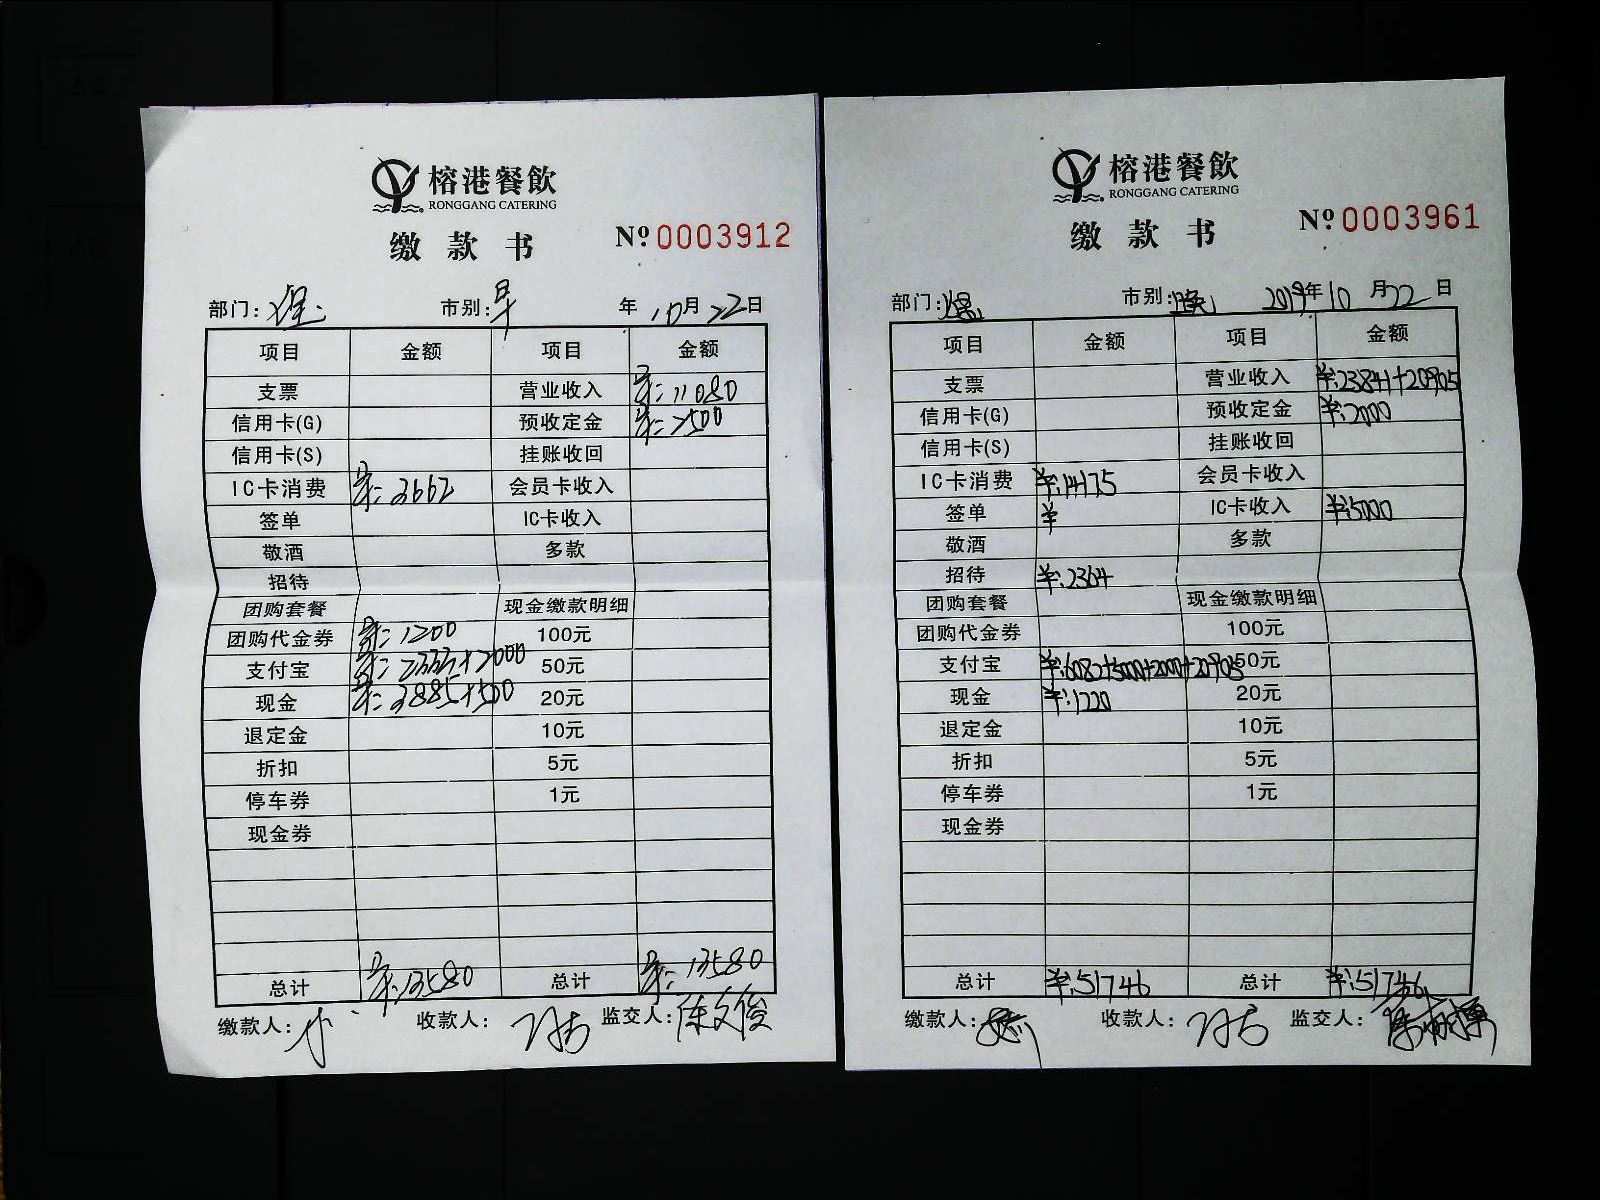 榕港餐飲
RONGGANG CATERING
缴款书
Nº 0003912
部门: 市别: 早 年 10月22日
项目 金额 项目 金额
支票 营业收入 ¥: 11080
信用卡(G) 预收定金 ¥: 2500
信用卡(S) 挂账收回
IC卡消费 ¥: 3662 会员卡收入
签单 IC卡收入
敬酒 多款
招待
团购套餐 现金缴款明细
团购代金券 ¥: 1200 100元
支付宝 ¥: 2333+2000 50元
现金 ¥: 3885+500 20元
退定金 10元
折扣 5元
停车券 1元
现金券
总计 ¥: 13580 总计 ¥: 13580
缴款人: 收款人: 监交人: 陈文俊
榕港餐飲
RONGGANG CATERING
缴款书
Nº 0003961
部门: 市别: 晚 2019年10月22日
项目 金额 项目 金额
支票 营业收入 ¥:23841+20905
信用卡(G) 预收定金 ¥:2000
信用卡(S) 挂账收回
IC卡消费 ¥:14175 会员卡收入
签单 ¥ IC卡收入 ¥:5000
敬酒 多款
招待 ¥:2364
团购套餐 现金缴款明细
团购代金券 100元
支付宝 ¥:6082+5000+2000+20905 50元
现金 ¥:1220 20元
退定金 10元
折扣 5元
停车券 1元
现金券
总计 ¥:51746 总计 ¥:51746
缴款人: 收款人: 监交人: